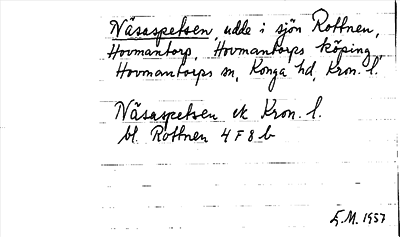 Näsaspetsen, udde i sjön Rottnen,
Hovmantorp, Hovmantorps köping,
Hovmantorps sn, Konga hd, Kron. l.
Näsaspetsen ek Kron. l.
bl. Rottnen 4 F 8 b
G.M. 1957